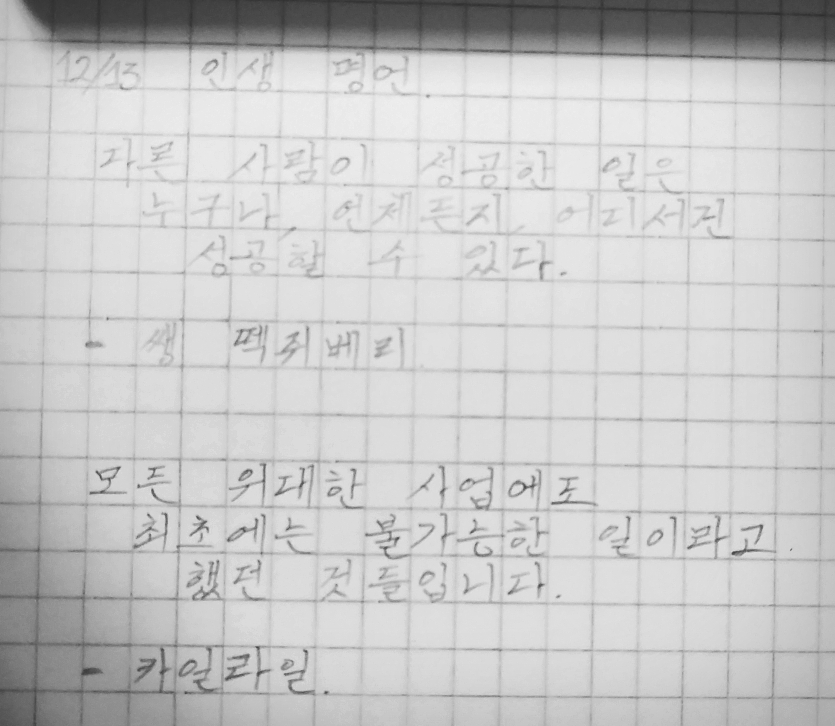 12/13 인생 명언.
다른 사람이 성공한 일은
누구나, 언제든지, 어디서건
성공할 수 있다.
- 쌩 떽쥐베리.
모든 위대한 사업에도
최초에는 불가능한 일이라고.
했던 것들입니다.
- 카일라일.